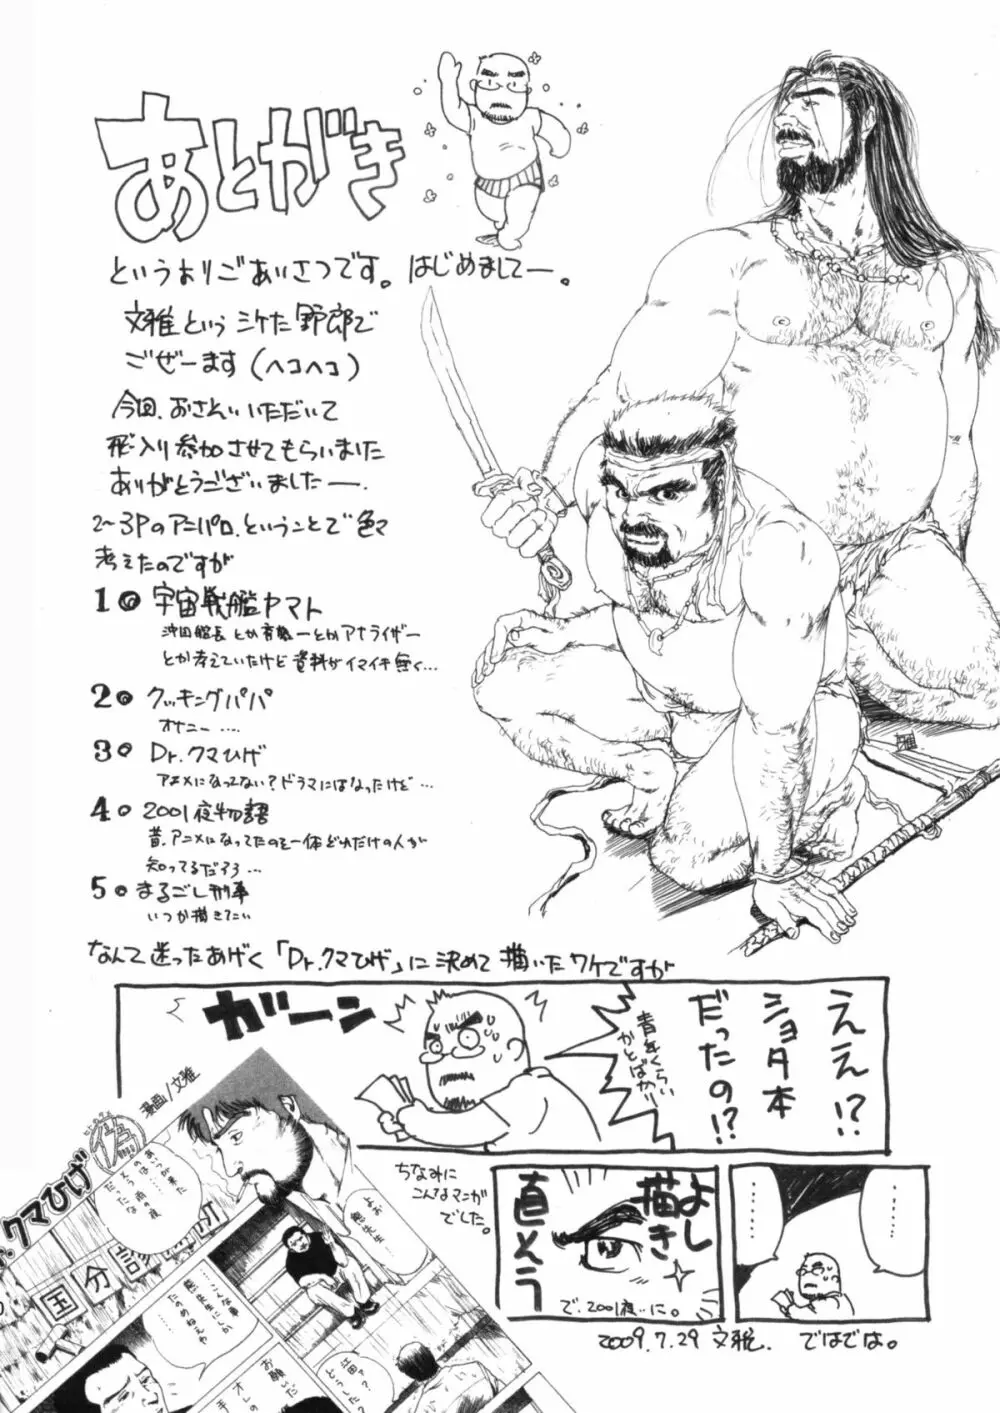 あとがき
というよりごあいさつです。はじめましてー。
文雅というシケた野郎で
ごぜーます(ヘコヘコ)
今回、おさそいいただいて
飛入り参加させてもらいました
ありがとうございましたー。
2〜3Pのアニパロ、ということで色々
考えたのですが
1。宇宙戦艦ヤマト
沖田艦長とか真田さんとかアナライザー
とか考えていたけど資料がイマイチ無く…
2。クッキングパパ
オナニー‥‥
3。Dr.クマひげ
アニメになってない?ドラマにはなったけど…
4。2001夜物語
昔、アニメになってたのを一体どれだけの人が
知ってるだろう…
5。まるごし刑事
いつか描きたい
なんて迷ったあげく「Dr.クマひげ」に決めて描いたワケですが
ええ!?
ショタ本
だったの!?
青年くらい
かとばかり
ガーン
………
………
よし
描き
直そう
で、2001夜に。
ちなみに
こんなマンガ
でした。
漫画/文雅
偽
クマひげ
国分診
お願いだ
2009.7.29 文雅. ではでは。